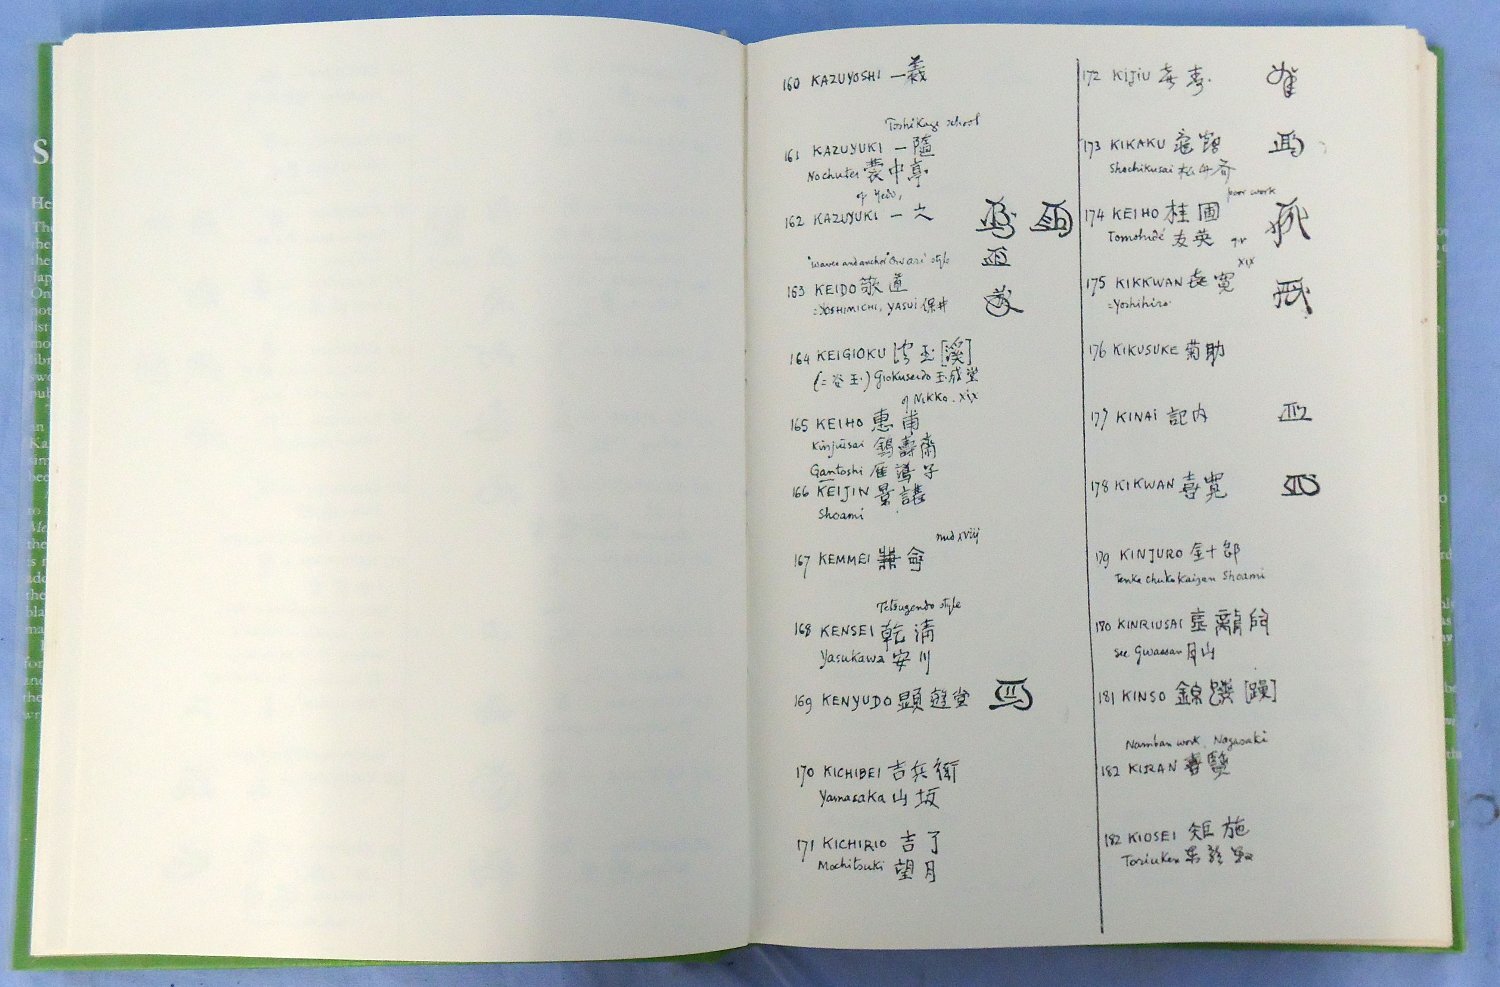 160 KAZUYOSHI 一義
Toshikage school
161 KAZUYUKI 一随
Nochutei 蓑中亭
of Yedo,
162 KAZUYUKI 一之
"Waves and anchor" Owari style
163 KEIDO 敬道
=YOSHIMICHI, YASUI 保井
164 KEIGIOKU 玉 [溪]
(= 谷玉) Giokuseido 玉成堂
of Nikko. xix
165 KEIHO 惠甫
Kinjusai 壽齋
Gantoshi 雁子
166 KEIJIN 景
Shoami
mid xviij
167 KEMMEI 兼命
Tetsugendo style
168 KENSEI 乾清
Yasukawa 安川
169 KENYUDO 顕遊堂
170 KICHIBEI 吉兵衛
Yamasaka 山坂
171 KICHIRIO 吉了
Mochitsuki 望月
172 KIJIU 喜寿.
173 KIKAKU
Shochikusai 松竹斎
poor work
174 KEIHO 桂圃
Tomohidé 友英
xix
175 KIKKWAN 喜寛
=Yoshihiro
176 KIKUSUKE 菊助
177 KINAI 記内
178 KIKWAN 喜寛
179 KINJURO 金十郎
Tenka Chuko Kaizan Shoami
180 KINRIUSAI
see Gwassan 月山
181 KINSO 錦
Namban work. Nagasaki
182 KIRAN 喜覧
182 KIOSEI 矩施
Toriuken